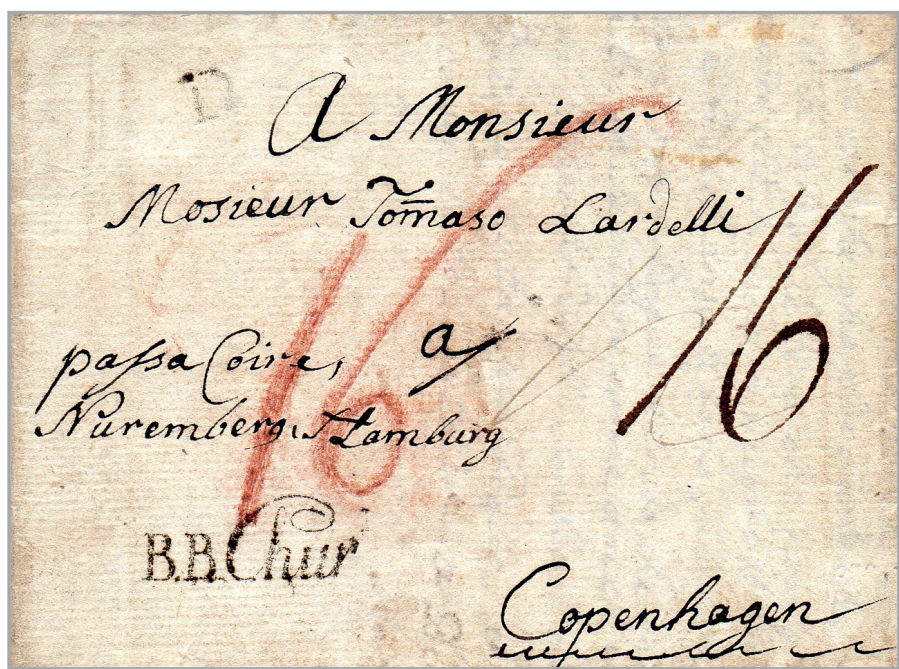 n
A Monsieur
Mosieur Tom̄aso Lardelli
16
16
passa Coire, a
Nuremberg, Hamburg
B.B.Chur
Copenhagen